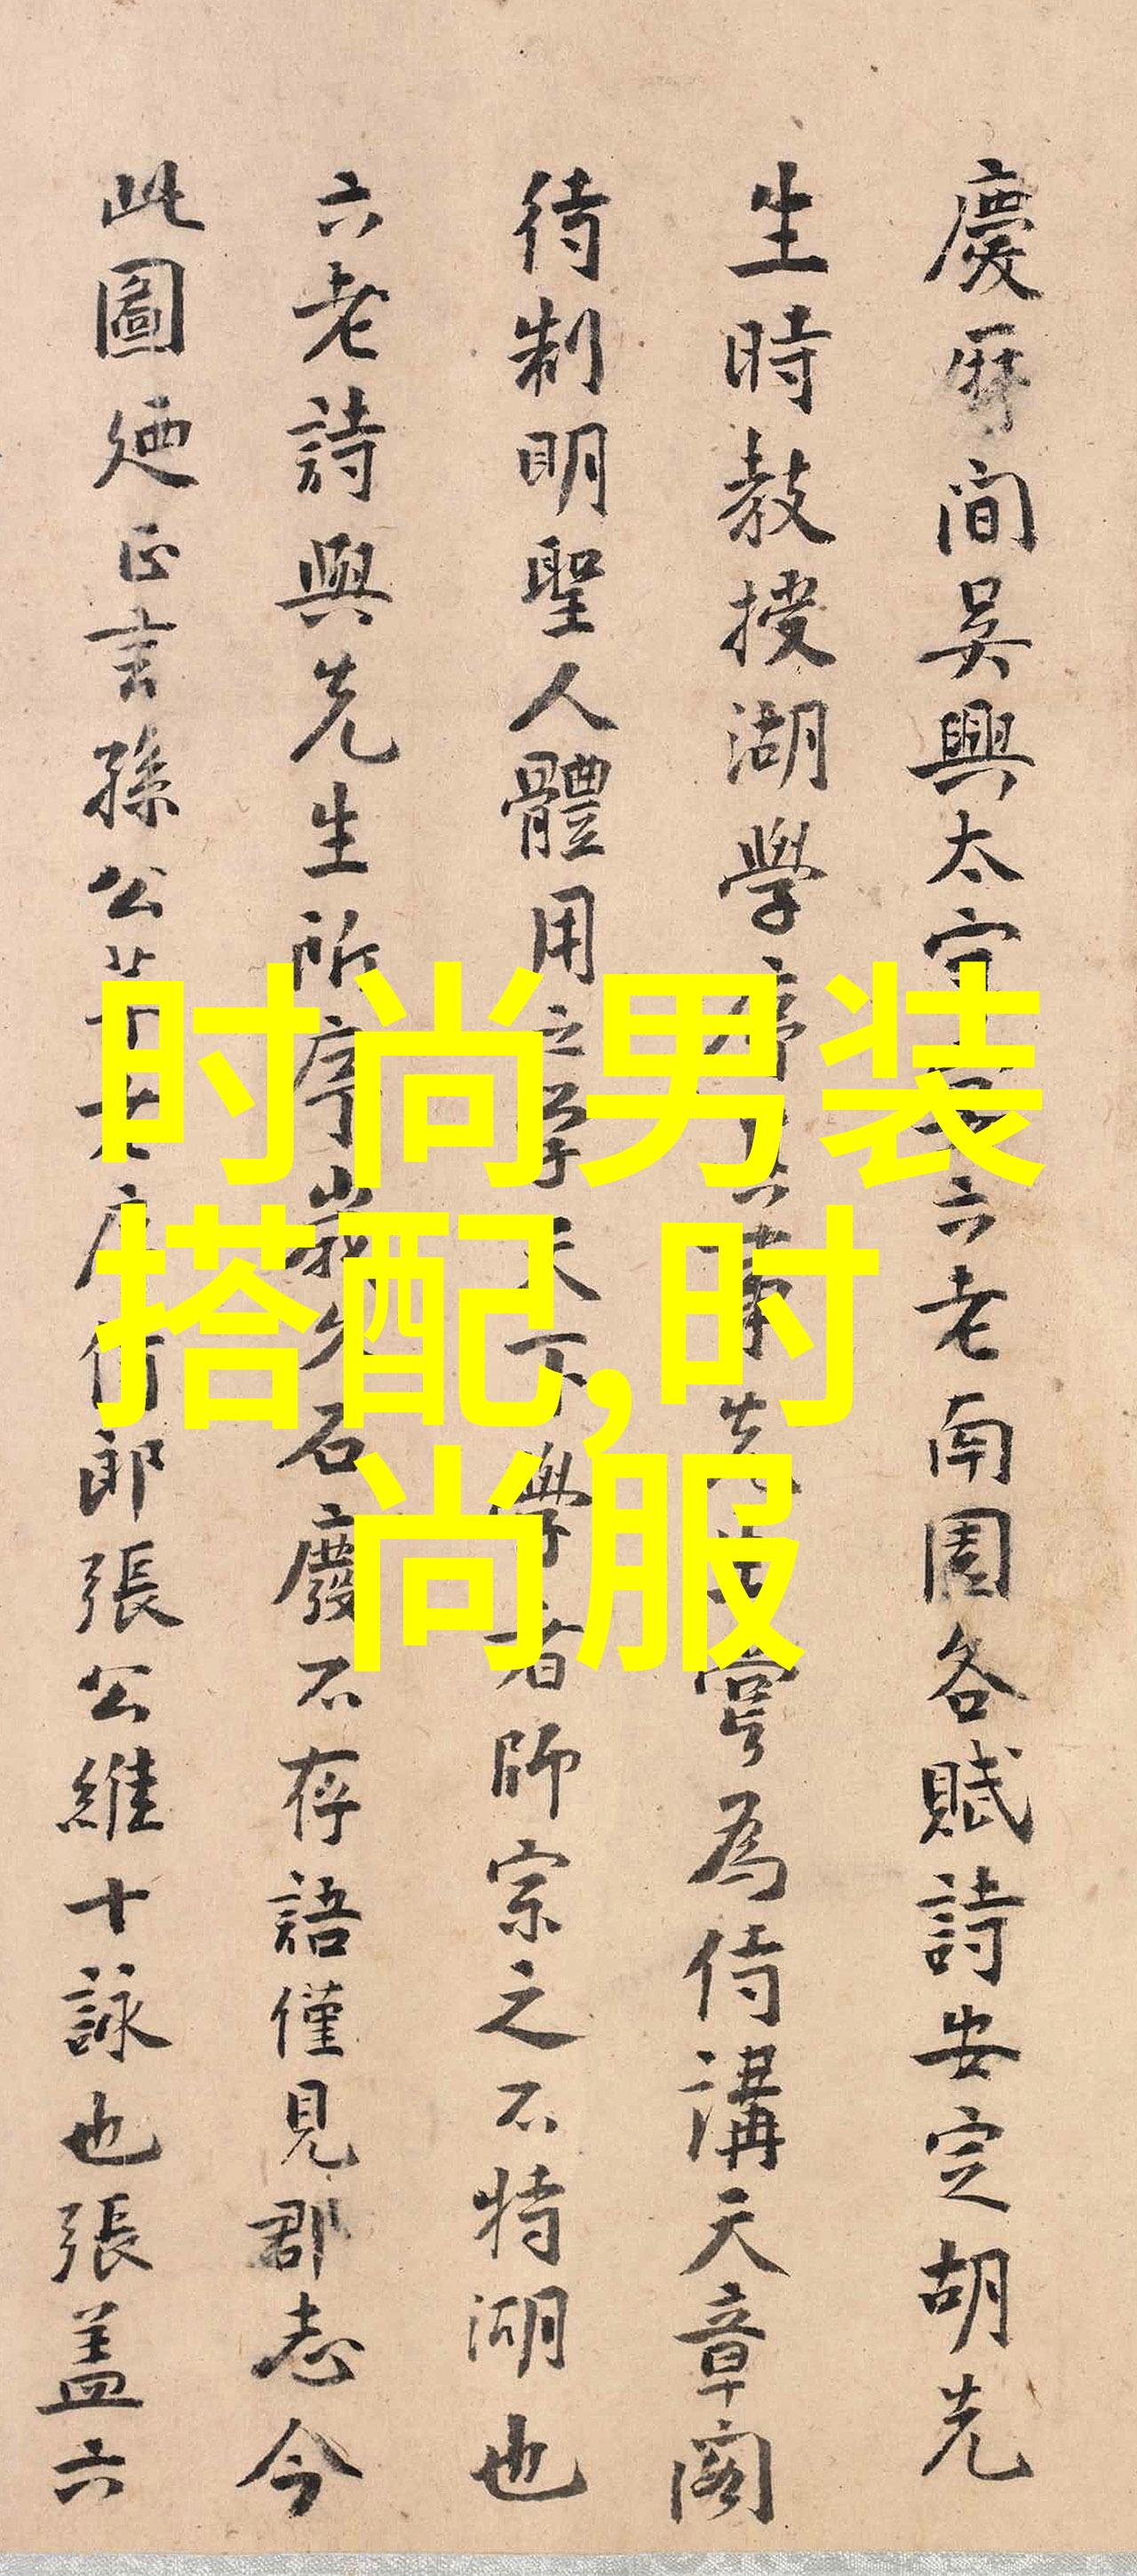 慶曆間吳興太守 六老南園各賦詩安定胡先
生時教授湖學序其事先生嘗為侍講天章閣
待制明聖人體用之學天下學者師宗之不特湖也
六老詩與先生所序歲久石廢不存語僅見郡志今
此圖廼正言孫公 郎張公維十詠也張蓋六
时尚男装
搭配,时
尚服